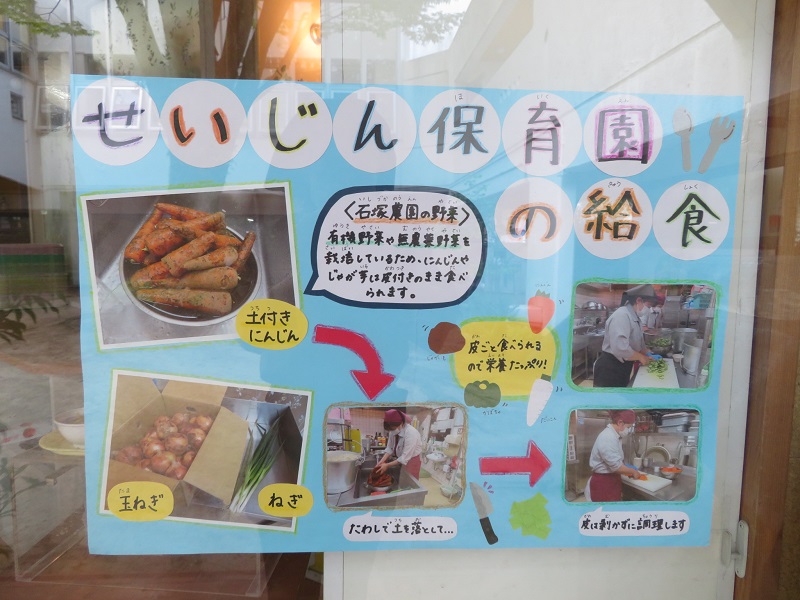 せいじん保育園
の給食
〈石塚農園の野菜〉
有機野菜や無農薬野菜を
栽培しているため、にんじんや
じゃが芋は皮付きのまま食べ
られます。
土付き
にんじん
皮ごと食べられる
ので栄養たっぷり!
玉ねぎ
ねぎ
たわしで土を落として...
皮は剥かずに調理します